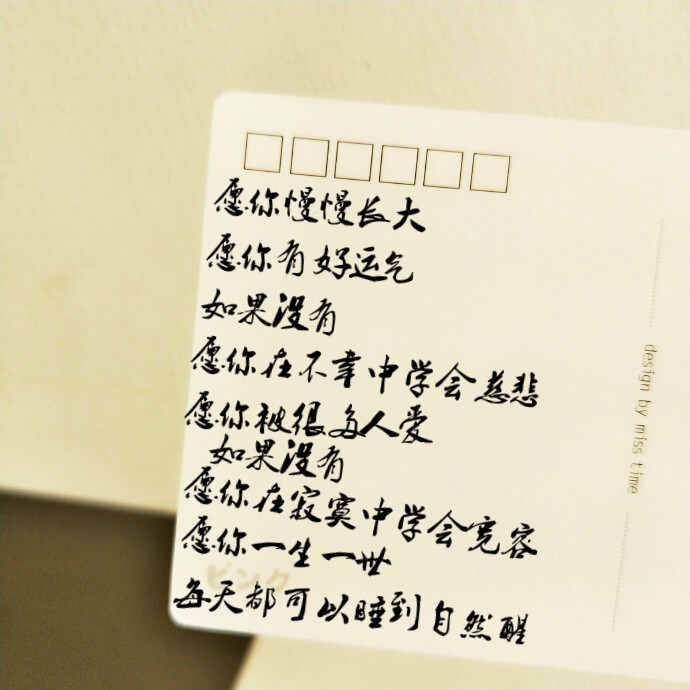 愿你慢慢长大
愿你有好运气
如果没有
愿你在不幸中学会慈悲
愿你被很多人爱
如果没有
愿你在寂寞中学会宽容
愿你一生一世
ピンク
每天都可以睡到自然醒
design by miss time